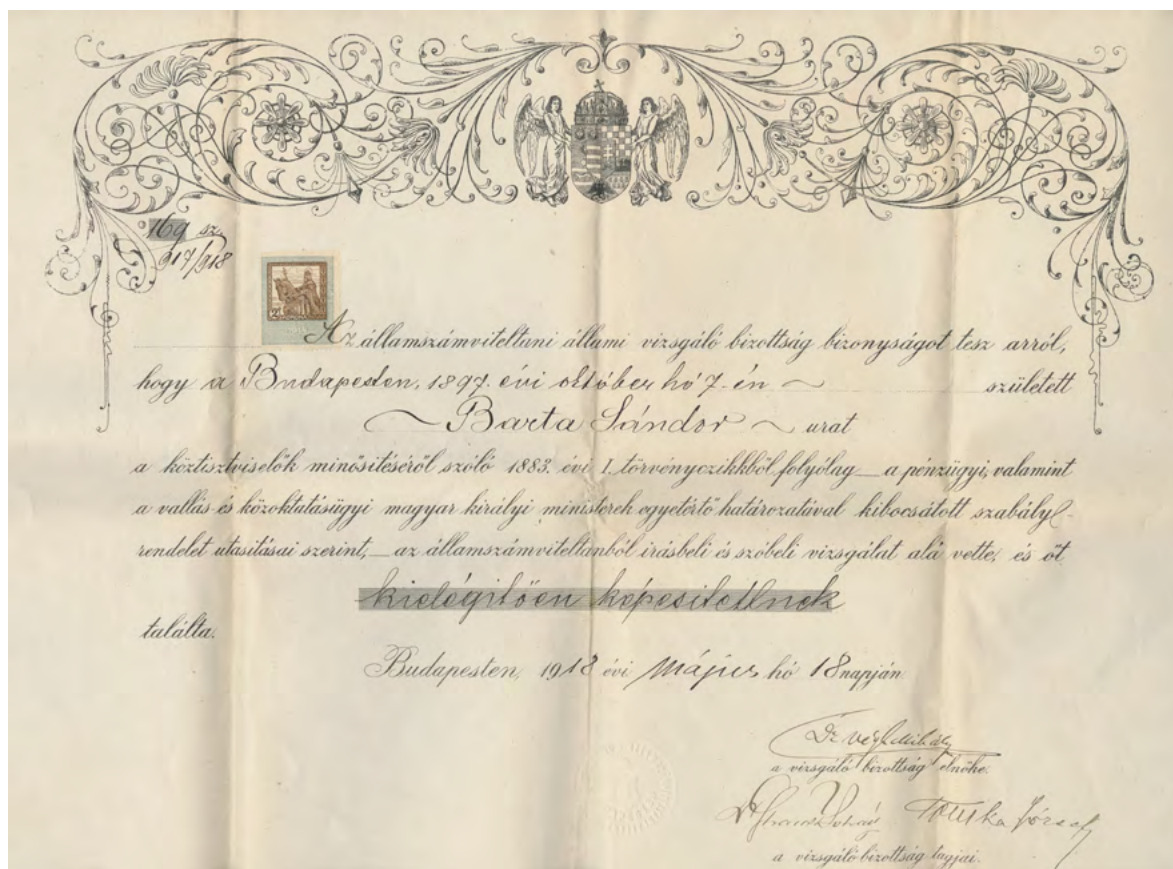 169 sz.
917/918
Az államszámviteltani állami vizsgáló bizottság bizonyságot tesz arról,
hogy a Budapesten, 1897. évi október hó 7-én született
Barta Sándor urat
a köztisztviselők minősitéséről szóló 1883. évi I. törvényczikkből folyólag — a pénzügyi, valamint
a vallás és közoktatásügyi magyar királyi ministerek egyetértő határozatával kibocsátott szabály-
rendelet utasitásai szerint, — az államszámviteltanból irásbeli és szóbeli vizsgálat alá vette, és őt
kielégitően képesitettnek
találta.
Budapesten, 1918 évi május hó 18 napján
Dr
a vizsgáló bizottság elnöke.
Dr József
a vizsgáló bizottság tagjai.